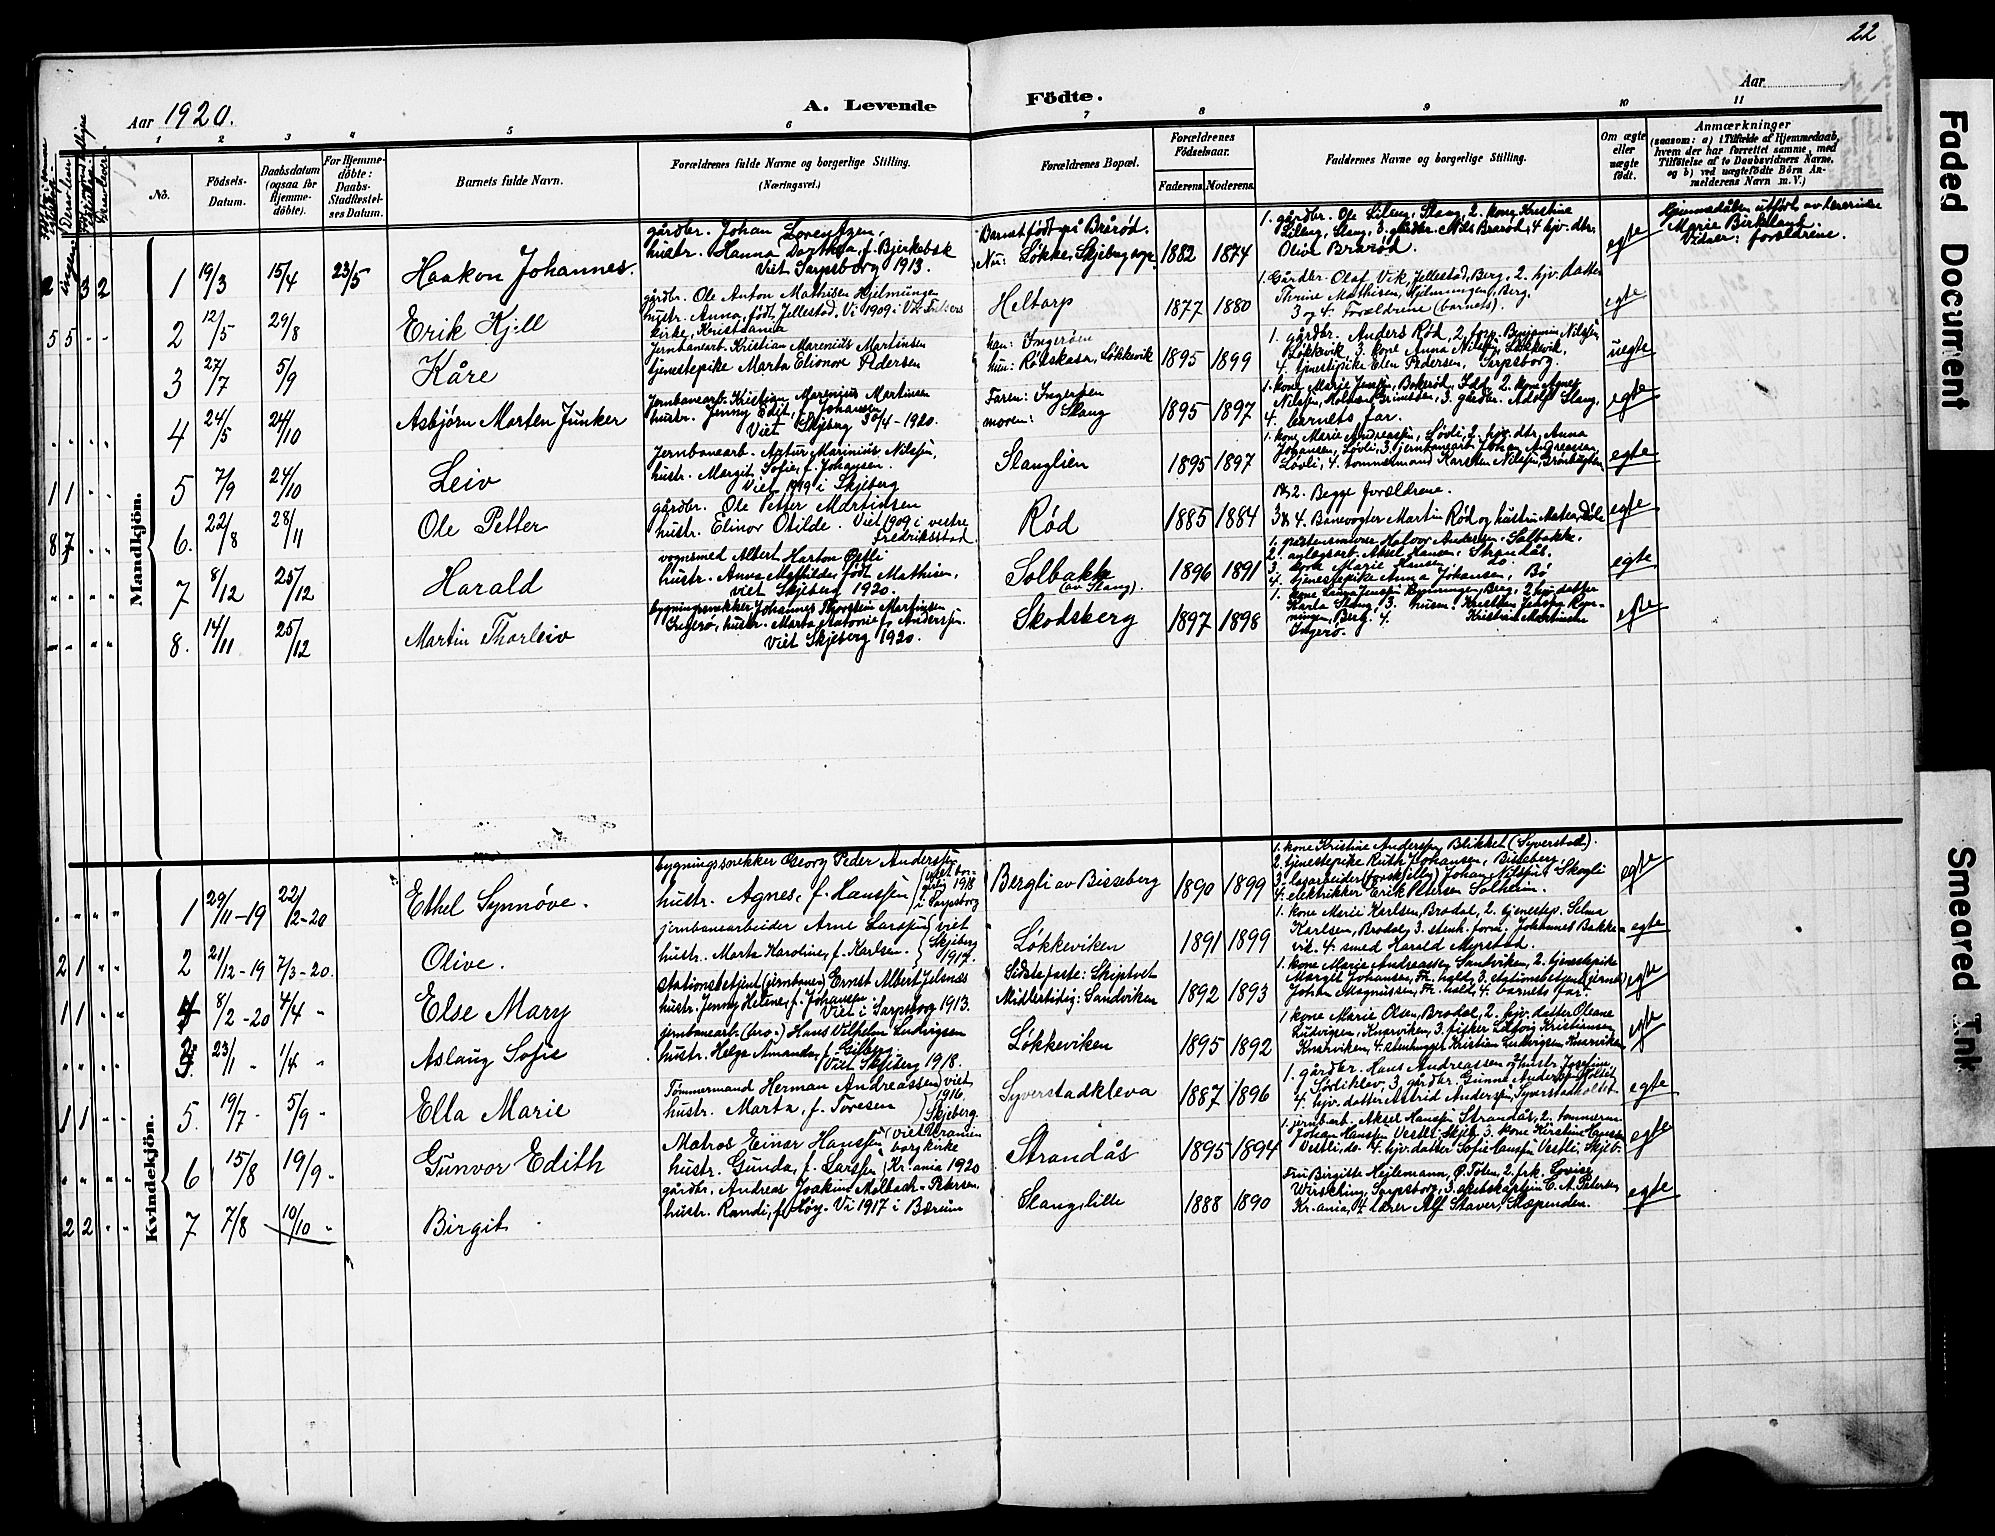 22
Aar 1920.
A. Levende Födte.
Aar
1 2 3 4 5 6 7 8 9 10 11
No.
Födsels-Datum.
Daabsdatum (ogsaa for Hjemme-döbte).
For Hjemme-döbte: Daabs-Stadfæstel-ses Datum.
Barnets fulde Navn.
Forældrenes fulde Navne og borgerlige Stilling. (Næringsvei.)
Forældrenes Bopæl.
Forældrenes Födselsaar.
Faderens. Moderens.
Faddernes Navne og borgerlige Stilling.
Om ægte eller uægte födt.
Anmærkninger
(saasom: a) i Tilfælde af Hjemmedaab,
hvem der har forrettet samme, med
Tilföielse af to Daabsvidners Navne,
og b) ved uægtefödte Börn An-
melderens Navn m. V.)
Mandkjön.
1 19/3 15/4 23/5 Haakon Johannes.
gårdbr. Johan Lorentzen,
hustr. Hanna Dorthea, f. Bjerkebæk
Viet Sarpsborg 1913.
Barnet født på Brårød.
Nu: Løkke, Skjeberg sogn.
1882 1874
1. gårdbr. Ole Lileng, Slang, 2. kone Kristine
Lileng, Slang, 3. gårdbr. Nils Brårød, 4 hjv. dtr.
Olive Brårød.
egte
Hjemmedåpen utført av lærerinde
Marie Birkeland
Vidner: forældrene.
2 12/5 29/8 Erik Kjell
gårdbr. Ole Anton Mathisen Hjelmungen
hustr. Anna, født Jellestad. Vi 1909 i
kirke, Kristiania
Heltorp
1877 1880
1. Gårdbr. Olaf Vik, Jellestad, Berg, 2. hjv. datter
Thrine Mathisen, Hjelmungen, Berg.
3 og 4. Forældrene (barnets).
egte
3 27/7 5/9 Kåre
Jernbanearb. Kristian Marenius Martinsen
tjenestepike Marta Elionore Pedersen
han: Ingerøen
hun: Rødskasa, Løkkevik
1895 1899
1. gårdbr. Anders Rød, 2. torp. Benjamin Nilssen
Løkkevik, 3. kone Anna Nilssen, Løkkevik,
4. tjenestepike Elen Pedersen, Sarpsborg.
uegte
4 24/5 24/10 Asbjørn Morten Junker
Jernbanearb. Kristian Marenius Martinsen
hustr. Jenny Edit, f. Johansen
Viet Skjeberg 30/4 - 1920.
Faren: Ingerøen
moren: Slang
1895 1897
1. kone Marie Jensen, Bokerød, Idd, 2. kone Agnes
Nilssen, Holmen Grimsøen, 3. gårdbr. Adolf Slang,
4. barnets far.
egte
5 7/9 24/10 Leiv
Jernbanearb. Artur Marinius Nilssen,
hustr. Margit Sofie, f. Johansen.
Viet 1919 i Skjeberg
Slanglien
1895 1897
1. kone Marie Andreassen, Løvli, 2. hjv. dtr. Anna
Johansen, Løvli, 3. jernbanearb. Johan Andreassen
Løvli, 4. tømmermand Karsten Nilssen,
egte
6. 22/8 28/11 Ole Petter
gårdbr. Ole Petter Martinsen
hustr. Elinor Otilde. Viet 1909 i vestre
Fredriksstad
Rød
1885 1884
1 & 2. Begge forældrene.
3 & 4. Banevogter Martin Rød og hustru Matea, Döle
egte
7 8/12 25/12 Harald
vognsmed Albert Harton Østli
hustr. Anna Mathilde, født Mathisen,
viet Skjeberg 1920.
Solbakke
(av Slang).
1896 1891
Halvor Andersen, Solbakke,
2. anlægsarb. Aksel Hansen, Strandås.
3. kone Marie Hansen do.
4. tjenestepike Anna Johansen, Bø
egte
8. 14/11 25/12 Martin Thorleiv
bygningssnekker Johannes Thorstein Martinsen
Ingerø, hustr. Marta Antonie, f. Anderssen.
Viet Skjeberg 1920.
Skodsberg
1897 1898
1. kone Laura Jenssen Rynningen, Berg, 2. hjv. datter
Karla Slang, 3. husm. Kristian Jenssen Ryn-
ningen, Berg. 4. Kristian Martinsen
Ingerø.
egte
Kvindekjön.
1 29/11-19 22/2-20 Ethel Synnøve.
bygningssnekker Georg Peder Anderssen
hustr. Agnes, f. Hanssen
(viet bor-
gerlig 1918
i Sarpsborg
Bergli av Bisseberg
1890 1899
1. kone Kristine Anderssen, Blikket (Syverstad).
2. tjenestepike Ruth Johansen, Bisseberg
Johan Nilssen, Skogli
4. elektrikker Erik Petersen Solheim.
egte
2 21/12-19 7/3-20. Olive.
jernbanearbeider Arne Larssen
hustr. Marta Karoline, f. Karlsen.
viet
Skjeberg
1917.
Løkkeviken
1891 1899
1. kone Marie Karlsen, Brodal, 2. tjenestep. Selma
Karlsen, Brodal, 3. stenh. form. Johannes Bakke-
vik. 4. smed Harald Myrstad.
egte
4 8/2-20 4/4 - Else Mary
stationsbetjent (jernbanen) Ernst Albert Jelsnæs
hustr. Jenny Helene, f. Johansen
Viet i Sarpsborg 1913.
Sidste faste: Skiptvet
Midlertidig: Sandviken
1892 1893
1. kone Marie Andreassen Sandviken, 2. tjenestepike
Margit Johansen, Fr. hald, 3. stationsbetjent (jernb.)
Johan Magnussen, Fr. hald, 4. barnets far.
egte
3. 23/1 - 1/4 - Aslaug Sofie
jernbanearb. (bro-) Hans Vilhelm Ludvigsen
hustr. Helga Amanda, f. Gilberg.
Viet Skjeberg 1918.
Løkkeviken
1895 1892
1 kone Marie Olsen, Brodal, 2. hjv. datter Oleane
Ludvigsen, Knarviken, 3. fisker Ludvig Kristiansen
Knarviken, 4. stenhugger Kristian Ludvigsen Knarviken
egte
5. 19/7 - 5/9 - Ella Marie
Tømmermand Herman Andreassen
hustr. Marta, f. Toresen
viet
1916,
Skjeberg.
Syverstadkleva
1887 1896
1. gårdbr. Hans Andreassen og hustr. Josefine
Sørliklev, 3. gårdbr. Gunne Anderssen Holtet
4. hjv. datter Astrid Anderssen, Syverstadholtet
egte
6 15/8 19/9 - Gunvor Edith
Matros Einar Hanssen
hustr. Gunda, f. Larssen
(viet Uranien
borg kirke
Kr.ania 1920
Strandås
1895 1894
1. jernbarb. Aksel Hanssen Strandås, 2. tømmerm.
Johan Hanssen Vestli, Skjeb. 3. kone Kirstine Hanssen
Vestli, do. 4. hjv. datter Sofie Hanssen Vestli, Skjeb.
egte
7 7/8 10/10 - Birgit
gårdbr. Andreas Joakim Molbach-Petersen
hustr. Randi, f. Høy. Vi 1917 i Bærum
Slang, lille
1888 1890
Fru Birgitte Hejlemann, Ø. Toten, 2. frk. Lovise
Wirsching, Sarpsborg, 3. skibskaptein C. A. Petersen
Kr.ania, 4 lærer Alf Staver, Slæpenden.
egte
Faded Document
Smeared Ink